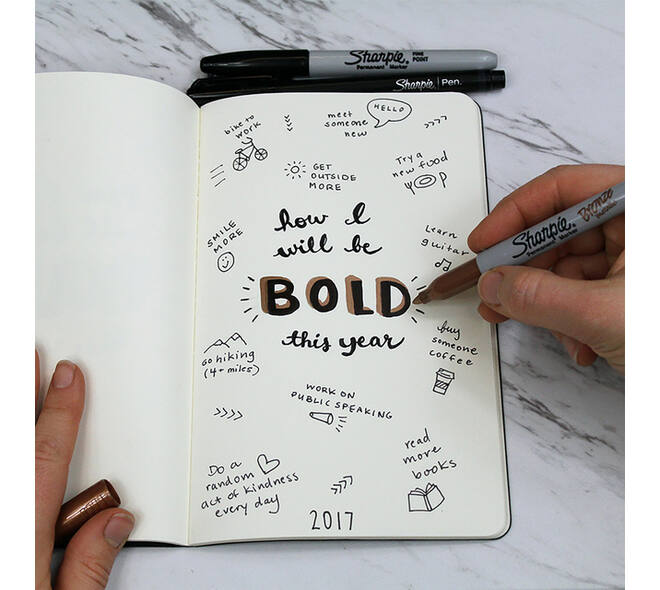 Sharpie. FINE POINT
Permanent Marker
Sharpie. Pen.
bike to
work
meet
someone
new
HELLO
GET
OUTSIDE
MORE
Try a
new food
SMILE
MORE
how I
will be
BOLD
this year
Learn
guitar
Sharpie. Bronze
Permanent Marker
GO hiking
(4+ miles)
buy
someone
coffee
WORK ON
PUBLIC SPEAKING
Do a
random
act of kindness
every day
read
more
books
2017